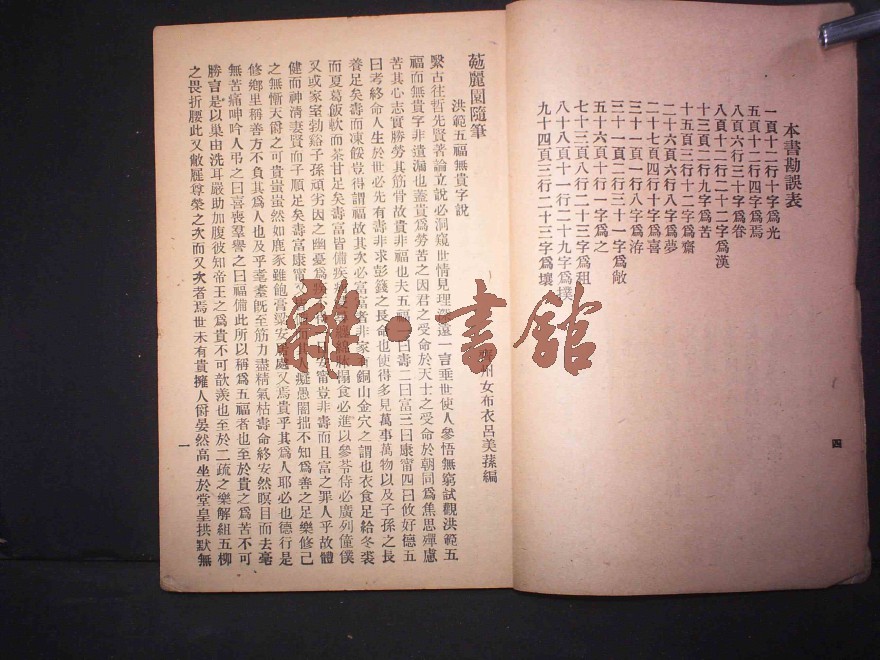 本書勘誤表
一頁十二行十字爲光
五頁十一行四字爲焉
八頁六行三十字爲眷
八頁十二行二字爲漢
十三頁二行九字爲苦
十五頁三行十二字爲齋
二十六頁六行八字爲夢
二十七頁四行十字爲喜
三十一頁一行八字爲洊
三十一頁二行三十一字爲敵
五十六頁十行一字爲之
七十三頁八行二十三字爲砠
八十八頁十一行二十九字爲撲
九十四頁三行二十三字爲壤
四
葂麗園隨筆
州女布衣呂美蓀編
洪範五福無貴字說
繄古往哲先賢著論立說必洞窺世情見理深遠一言垂世使人參悟無窮試觀洪範五
福而無貴字非遺漏也蓋貴爲勞苦之因君之受命於天士之受命於朝同爲焦思殫慮
苦其心志實勝勞其筋骨故貴非福也夫五福一曰壽二曰富三曰康甯四曰攸好德五
曰考終命人生於世必先有壽非求彭籛之長命也使得多見萬事萬物以及子孫之長
養足矣壽而凍餒豈得謂福故其次必富富者非家有銅山金穴之謂也衣食足給冬裘
而夏葛飯軟而茶甘足矣壽富皆備疾病牀榻食必進以參苓侍必廣列僮僕
又或家室勃谿子孫頑劣因之幽憂爲安甯豈非壽而且富之罪人乎故體
健而神清妻賢而子順足矣壽富康甯又癡愚闇拙不知爲善之足樂修己
之無慚天爵之可貴蚩蚩然如鹿豕雖飽膏粱安居處又焉貴乎其爲人耶必也德行是
修鄉里稱善方不負其爲人也及乎耄耋旣至筋力盡精氣枯壽命終安然暝目而去毫
無苦痛呻吟人弔之曰喜喪羣譽之曰福備此所以稱爲五福者也至於貴之爲苦不可
勝言是以巢由洗耳嚴助加腹彼知帝王之爲貴不可歆羨也至於二疏之樂解組五柳
之畏折腰此又敝屣尊榮之次而又次者焉世未有貴擁人爵晏然高坐於堂皇拱默無
一
雜·書館